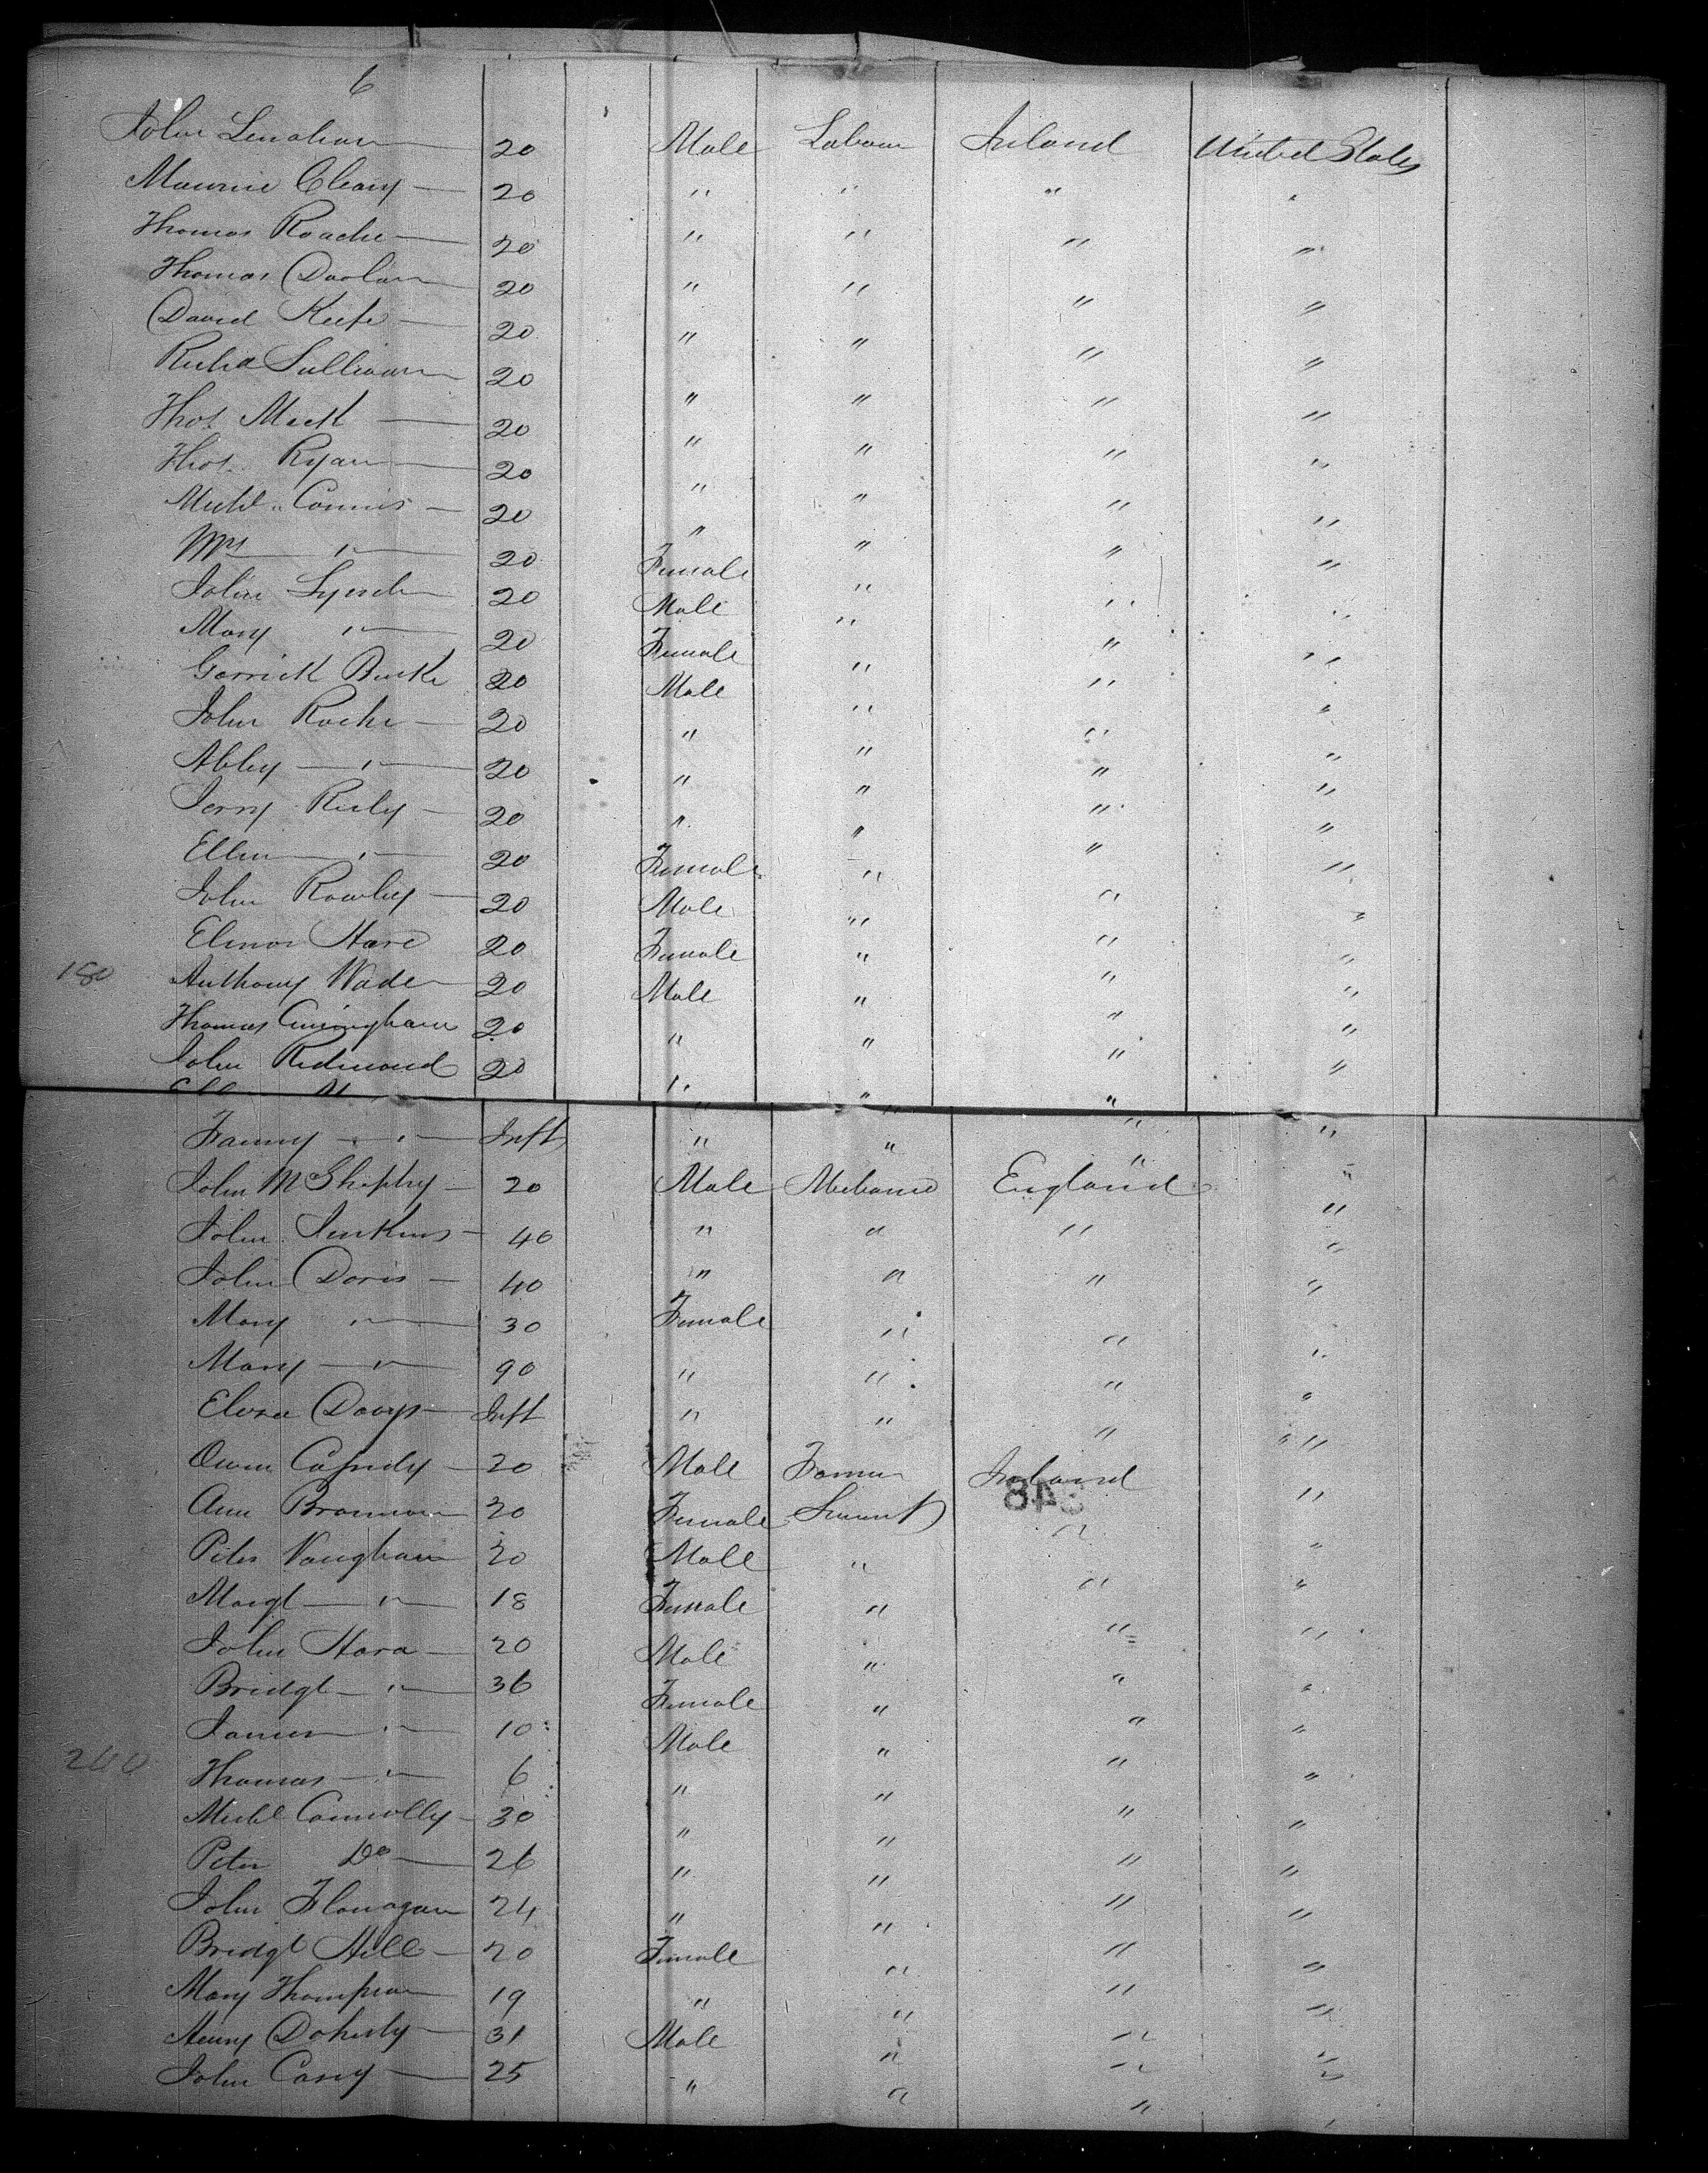 6
John Lenahan 20 Male Labour Ireland United States
Maurice Cleary 20 " " " "
Thomas Roache 20 " " " "
Thomas Doolan 20 " " " "
David Keefe 20 " " " "
Richd Sullivan 20 " " " "
Thos Mack 20 " " " "
Thos Ryan 20 " " " "
Michl " Connis 20 " " " "
Mrs " 20 Female " " "
John Lynch 20 Male " " "
Mary " 20 Female " " "
Garrick Burke 20 Male " " "
John Roche 20 " " " "
Abbey " 20 " " " "
Jerry Riely 20 " " " "
Ellen " 20 Female " " "
John Rowley 20 Male " " "
Elenor Hare 20 Female " " "
180 Anthony Wade 20 Male " " "
Thomas Cuningham 20 " " " "
John Redmond 20 " " " "
Fanny " Inft " " " "
John McShephy 20 Male Mechanic England "
John Jenkins 40 " " " "
John Doris 40 " " " "
Mary " 30 Female " " "
Mary " 90 " " " "
Inft " " " "
Owen Cassidy 20 Male Farmer Ireland "
348
Ann Brannan 20 Female Servant " "
Peter Vaughan 20 Male " " "
Margt " 18 Female " " "
John Hara 20 Male " " "
Bridgt " 36 Female " " "
James " 10 Male " " "
240 Thomas " 6 " " " "
Michl Connolly 30 " " " "
Peter Do 26 " " " "
John Flanagan 24 " " " "
Bridgt Hill 20 Female " " "
Mary Thompson 19 " " " "
Henry Doherty 31 Male " " "
John Casey 25 " " " "